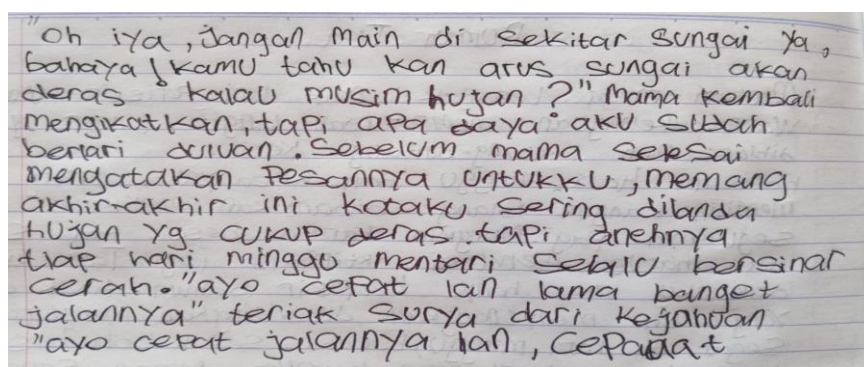 "Oh iya, jangan main di sekitar sungai ya,
bahaya! kamu tahu kan arus sungai akan
deras kalau musim hujan?" Mama kembali
mengikatkan, tapi apa daya aku sudah
berlari duluan. Sebelum mama selesai
mengatakan pesannya untukku, memang
akhir-akhir ini kotaku sering dilanda
hujan yg cukup deras. tapi anehnya
tiap hari minggu mentari selalu bersinar
cerah. "ayo cepat lan lama banget
jalannya" teriak surya dari kejauhan
"ayo cepat jalannya lan, cepaaat